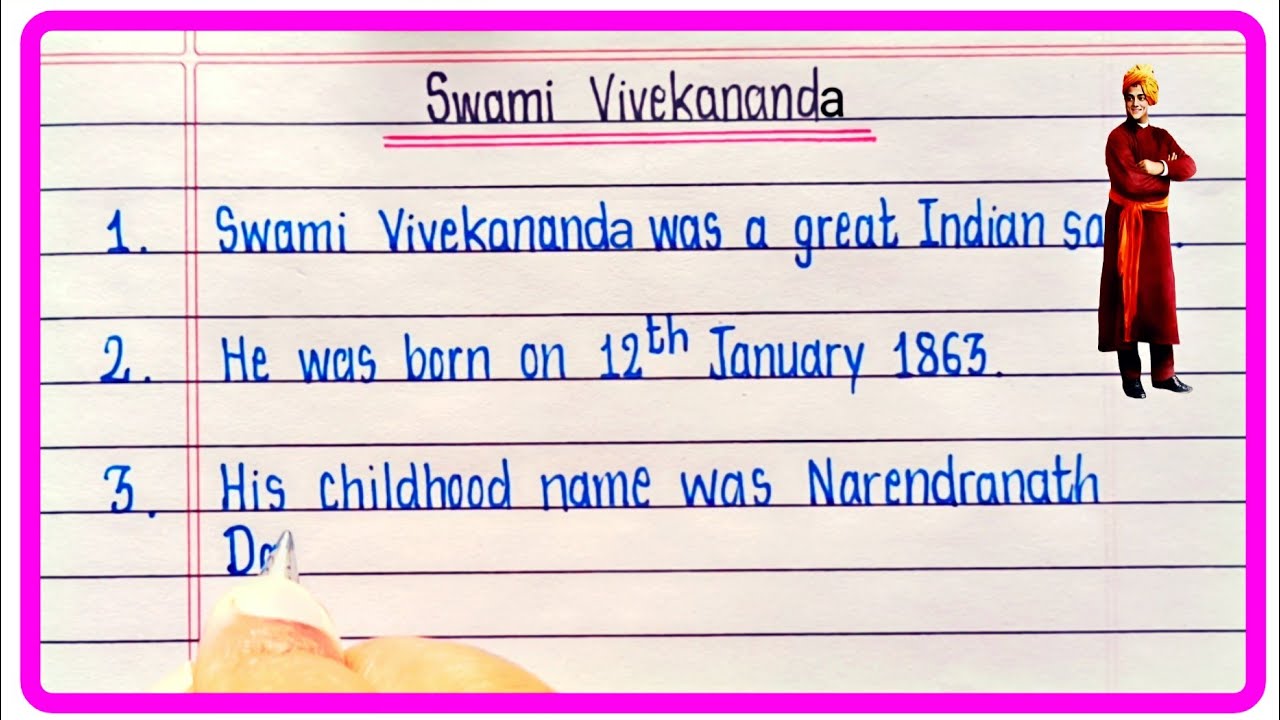 Swami Vivekananda
1. Swami Vivekananda was a great Indian
2. He was born on 12th January 1863.
3. His childhood name was Narendranath